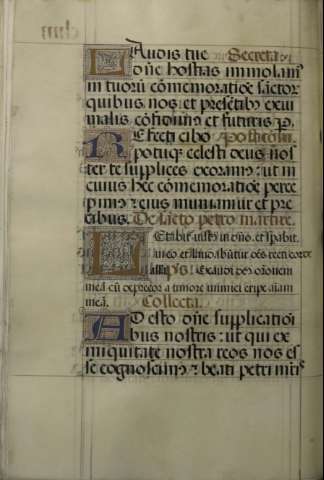 Laudis tue Secreta
dñe hostias immolam⁹
in tuoru͂ cõmemoratiõe sãctor
quibus nos et presẽtib⁹ exui
malis cõfidim⁹ et futuris p.
Refecti cibo Postcõio
potuq₃ celesti deus nos
ter te supplices exoram⁹: ut in
cuius hec cõmemoratiõe perce
pim⁹ ⁊ eius muniamur et pre
cibus. De sãcto petro martire.
Letabit iust⁹ in dño. et spabit
in eo et laudabũtur oẽs recti corde
ps Exaudi de⁹ orõnem
meã cũ deprecor a timore inimici eripe aĩam
meã. Collecta.
Adesto dñe supplicatiõi
bus nostris: ut qui ex
iniquitate nostra reos nos es
se cognoscim⁹ ⁊ beati petri mr̃is